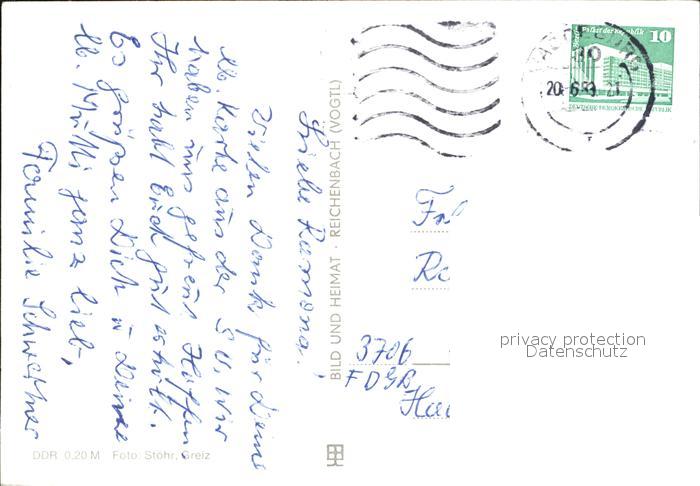 Liebe Ramona!
Vielen Dank für Deine
lb. Karte aus der SU. Wir
haben uns gefreut. Hoffen
Ihr habt Euch gut erholt.
Es grüßen Dich u Deine
lb. Mutti ganz lieb,
Familie
BILD UND HEIMAT · REICHENBACH (VOGTL)
DDR 0,20 M Foto: Stöhr, Greiz
Palast der Republik
10
DEUTSCHE DEMOKRATISCHE REPUBLIK
MAGDEBURG
20.-6.83-21
3706
FDGB
privacy protection
Datenschutz